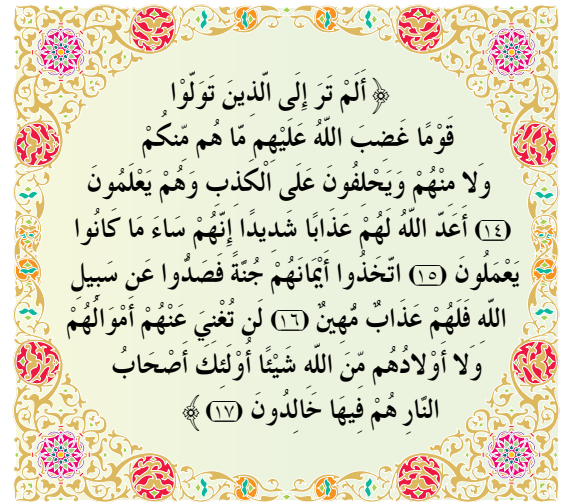 ﴿ أَلَمْ تَرَ إِلَى الَّذِينَ تَوَلَّوْا
قَوْمًا غَضِبَ اللَّهُ عَلَيْهِم مَّا هُم مِّنكُمْ
وَلا مِنْهُمْ وَيَحْلِفُونَ عَلَى الْكَذِبِ وَهُمْ يَعْلَمُونَ
(١٤) أَعَدَّ اللَّهُ لَهُمْ عَذَابًا شَدِيدًا إِنَّهُمْ سَاءَ مَا كَانُوا
يَعْمَلُونَ (١٥) اتَّخَذُوا أَيْمَانَهُمْ جُنَّةً فَصَدُّوا عَن سَبِيلِ
اللَّه فَلَهُمْ عَذَابٌ مُّهِينٌ (١٦) لَن تُغْنِيَ عَنْهُمْ أَمْوَالُهُمْ
وَلا أَوْلادُهُم مِّنَ اللَّه شَيْئًا أُوْلَئِكَ أَصْحَابُ
النَّارِ هُمْ فِيهَا خَالِدُونَ (١٧) ﴾